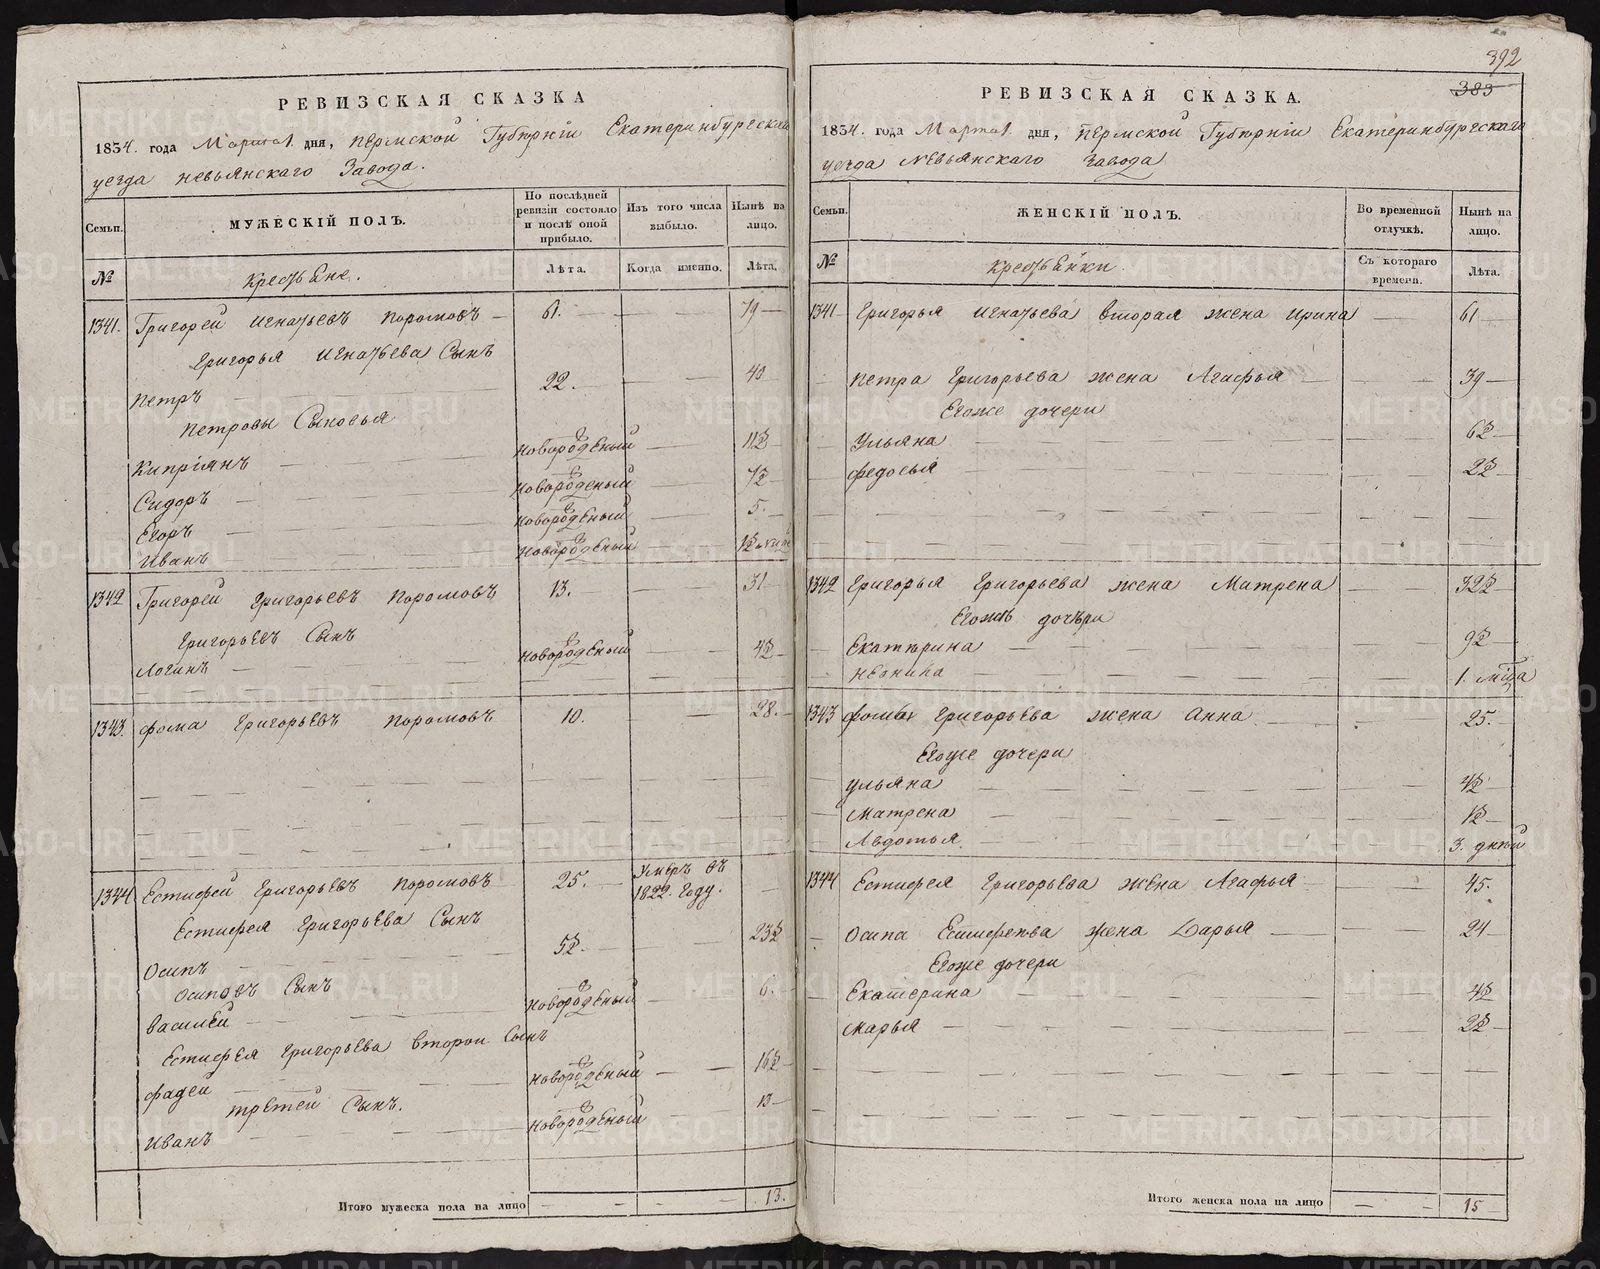 РЕВИЗСКАЯ СКАЗКА
1834. года Марта 1. дня, Пермской Губерніи Екатеринбургскаго
уезда Невьянскаго Завода.
Семьи.
МУЖЕСКІЙ ПОЛЪ.
По послѣдней ревизіи состояло и послѣ оной прибыло.
Изъ того числа выбыло.
Нынѣ на лицо.
№
Крестьяне.
Лѣта.
Когда именно.
Лѣта.
1341. Григорей Игнатьевъ Поромовъ 61. 79
Григорья Игнатьева Сынъ
Петръ 22. 40
Петровы Сыновья
Кипріянъ новорожденый 11½
Сидоръ новорожденый 7½
Егоръ новорожденый 5.
Иванъ новорожденый
1342 Григорей Григорьевъ Поромовъ 13. 31
Григорьевъ Сынъ
Логинъ новорожденый 4½
1343. Фома Григорьевъ Поромовъ 10. 28.
1344 Естифей Григорьевъ Поромовъ 25. Умеръ въ 1822. Году.
Естифея Григорьева Сынъ
Осипъ 5½. 23½
Осиповъ Сынъ
Василей новорожденый 6.
Естифея Григорьева второй Сынъ
Фадей новорожденый 16½
третей Сынъ.
Иванъ новорожденый 13
Итого мужеска пола на лицо 13.
392
383
РЕВИЗСКАЯ СКАЗКА.
1834. года Марта 1. дня, Пермской Губерніи Екатеринбургскаго
уезда Невьянскаго Завода
Семьи.
ЖЕНСКІЙ ПОЛЪ.
Во временной отлучкѣ.
Нынѣ на лицо.
№
Крестьянки
Съ котораго времени.
Лѣта.
1341 Григорья Игнатьева вторая жена Ирина 61
Петра Григорьева жена Агафья 39
Егоже дочери
Ульяна 6½
Федосья 2½
1342 Григорья Григорьева жена Матрена 32½
Егожъ дочери
Екатерина 9½
1. мѣца
1343 Фомы Григорьева жена Анна 25.
Егоже дочери
Ульяна 4½
Матрена 1½
Авдотья 3. дней
1344 Естифея Григорьева жена Агафья 45.
Осипа Естифеева жена Дарья 24
Егоже дочери
Екатерина 4½
Марья 2½
Итого женска пола на лицо 15
METRIKI.GASO-URAL.RU